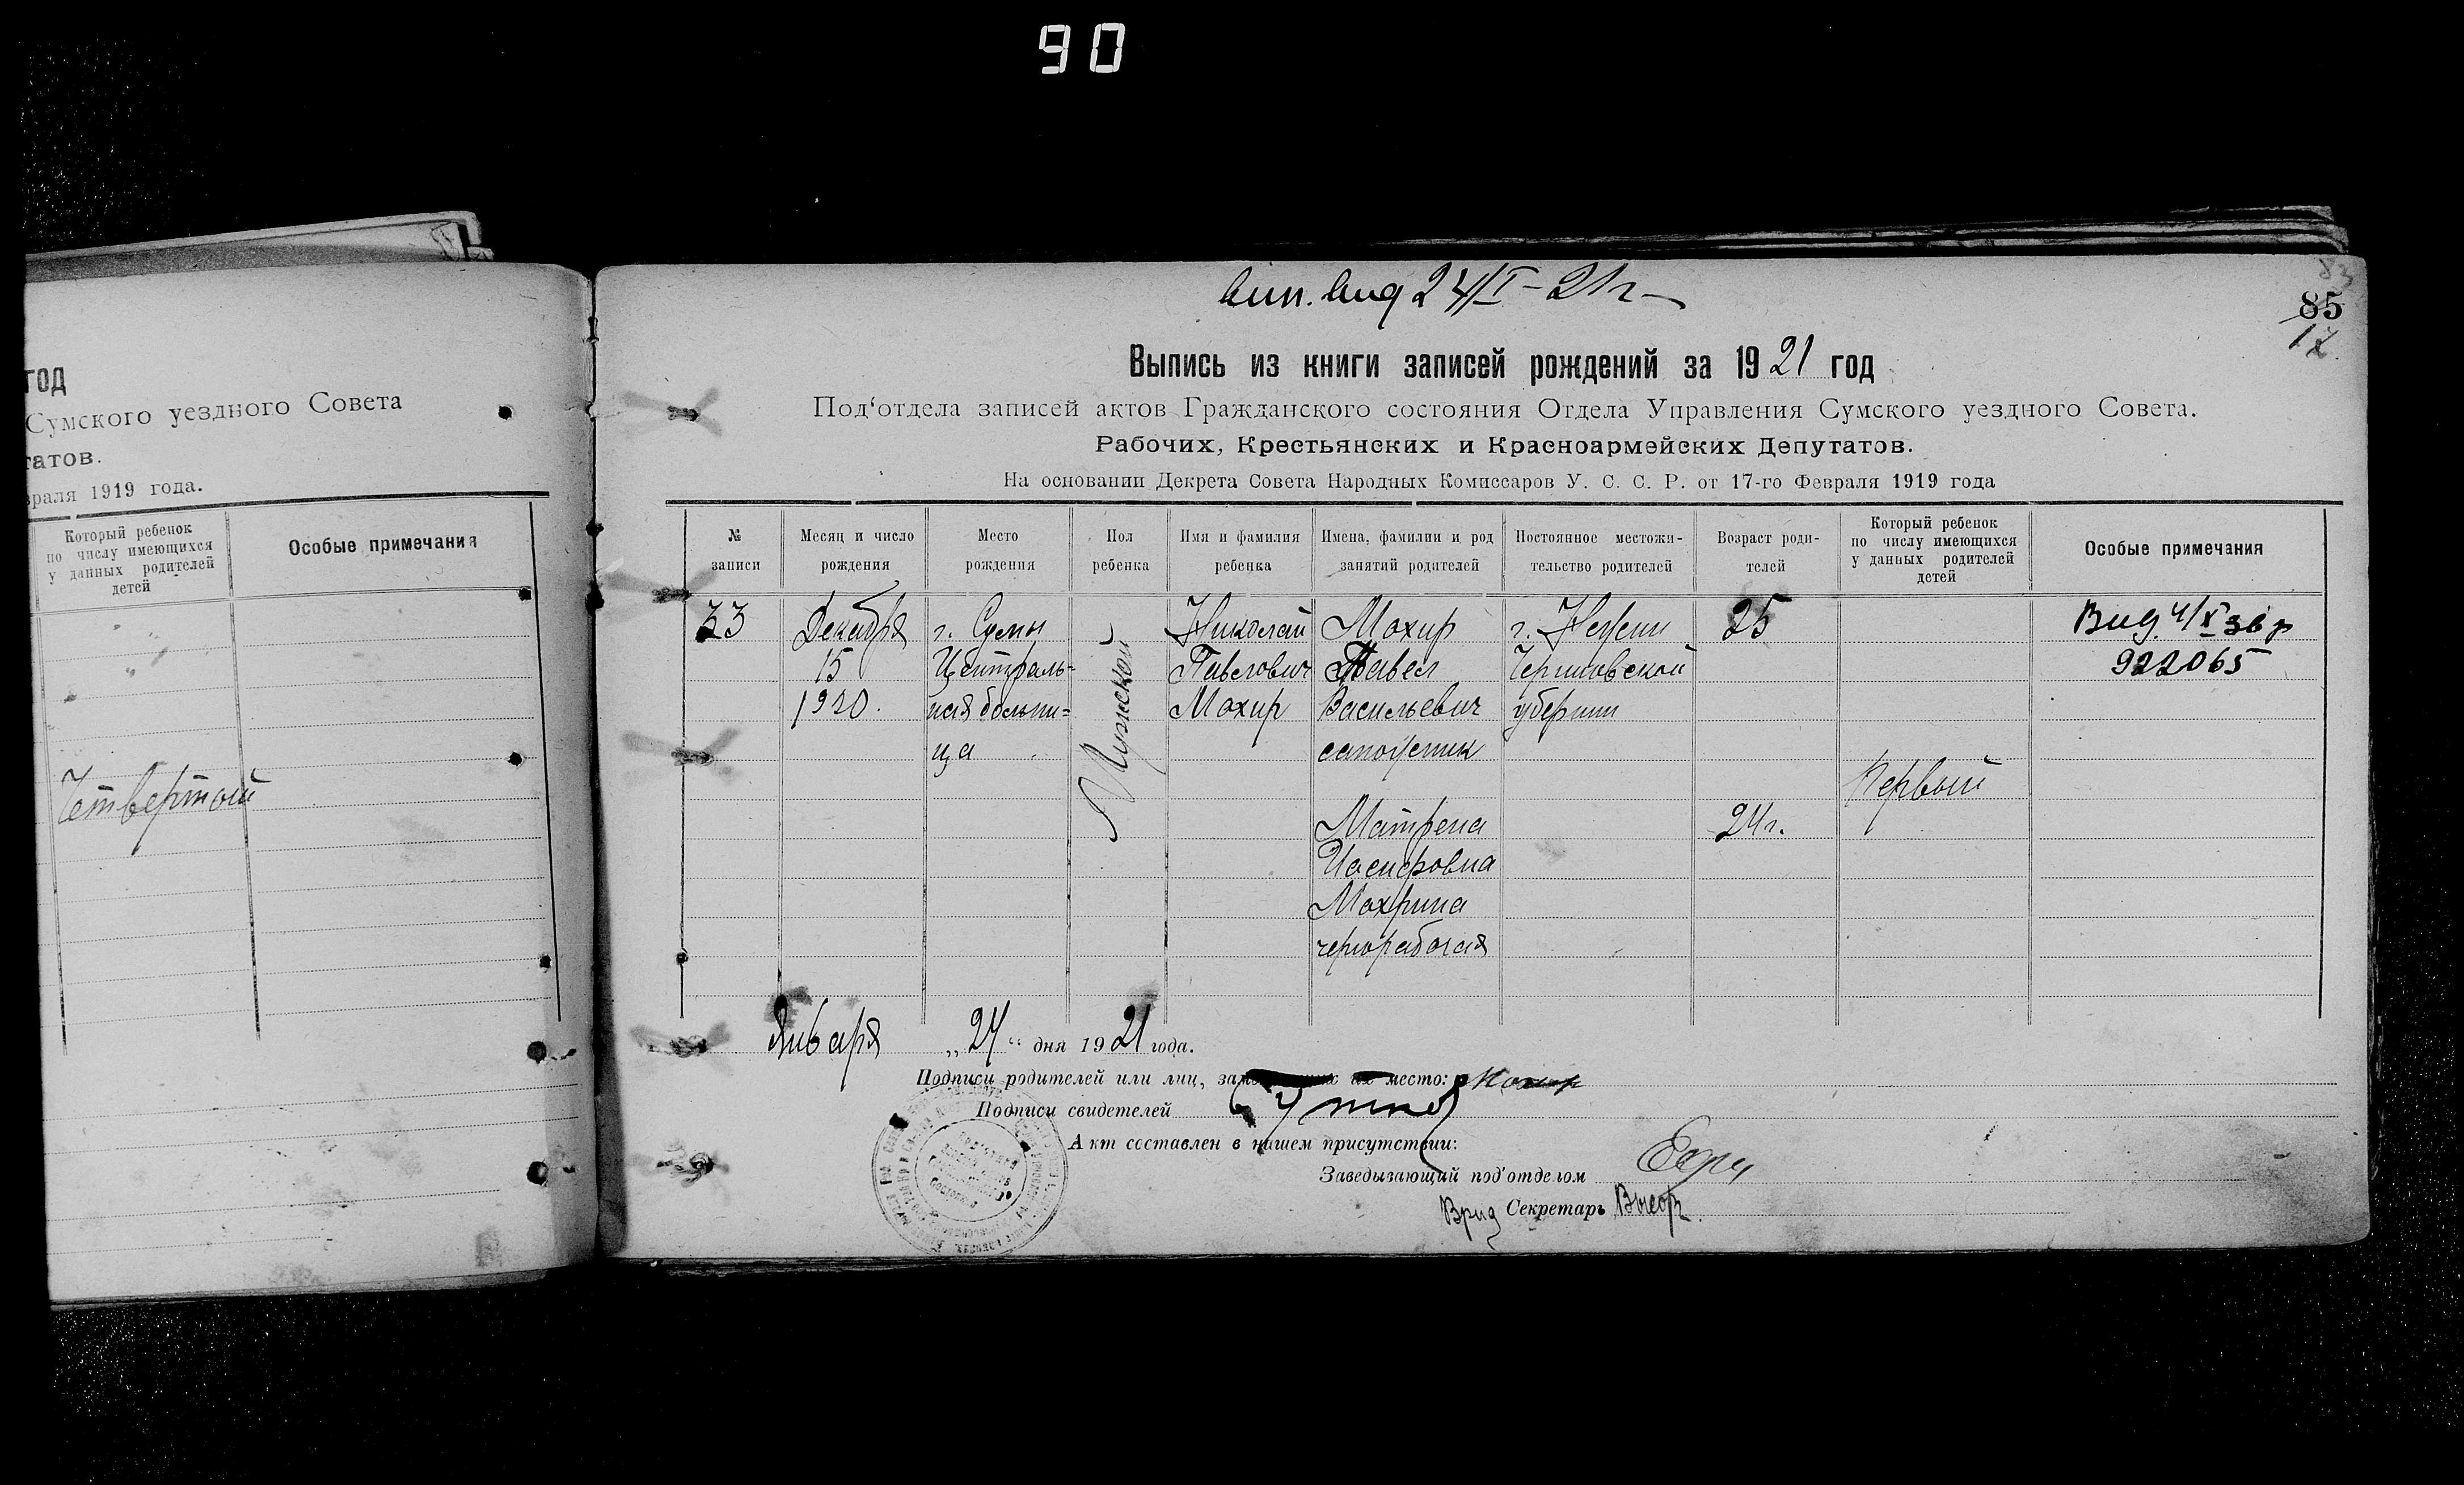 90
год
Сумского уездного Совета
татов.
враля 1919 года.
Который ребенок
по числу имеющихся
у данных родителей
детей
Особые примечания
Четвертый
вип. вид 24/I - 21 г
85
Выпись из книги записей рождений за 1921 год
Под'отдела записей актов Гражданского состояния Отдела Управления Сумского уездного Совета.
Рабочих, Крестьянских и Красноармейских Депутатов.
На основании Декрета Совета Народных Комиссаров У. С. С. Р. от 17-го Февраля 1919 года
№
записи
Месяц и число
рождения
Место
рождения
Пол
ребенка
Имя и фамилия
ребенка
Имена, фамилии и род
занятий родителей
Постоянное местожи-
тельство родителей
Возраст роди-
телей
Который ребенок
по числу имеющихся
у данных родителей
детей
Особые примечания
33
Декабря
15
1920.
г. Сумы
Централь-
ная больни=
ца
Мужской
Николай
Павлович
Мохир
Мохир
Павел
Васильевич
сапожник
Матрена
Иосифовна
Мохрина
чернорабочая
г. Нежин
Черниговской
губернии
25
24 г.
Первый
Вид. 4/X 36 р
922065
Января „24“ дня 1921 года.
Подписи родителей или лиц, место: Мохир
Подписи свидетелей
Акт составлен в нашем присутствии:
Заведывающий под'отделом
Врид Секретарь